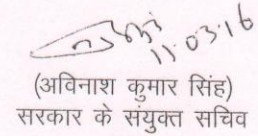 11.03.16
(अविनाश कुमार सिंह)
सरकार के संयुक्त सचिव